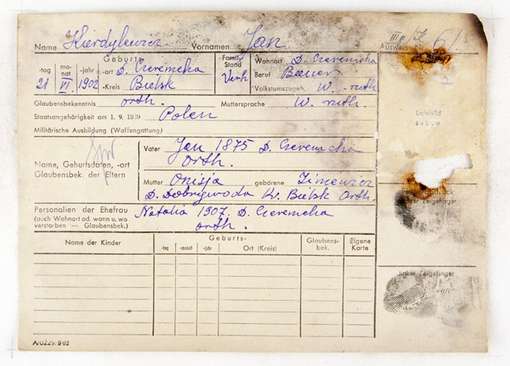 Name Kierdylewicz Vornamen Jan
Geburts- Familienstand Wohnort D. Czeremcha
tag monat -jahr -ort D. Czeremcha Verh. Beruf Bauer
21 VI. 1902 -Kreis Bielsk Volkstumszugeh. W. ruth.
Glaubensbekenntnis orth. Muttersprache W. ruth.
Staatsangehörigkeit am 1. 9. 1939 Polen
Militärische Ausbildung (Waffengattung)
Name, Geburtsdaten, -ort
Glaubensbek. der Eltern
Vater Jan 1875 D. Czeremcha
orth.
Mutter Onisja geborene Zimowicz
D. Dobrywoda Kr. Bielsk Orth.
Personalien der Ehefrau Natalia 1907. D. Czeremcha
(auch Wohnort ad. wann u. wo
verstorben — Glaubensbek.) orth.
Name der Kinder Geburts- Glaubensbek. Eigene Karte
-tag -monat -jahr Ort (Kreis)
Linker Zeigefinger